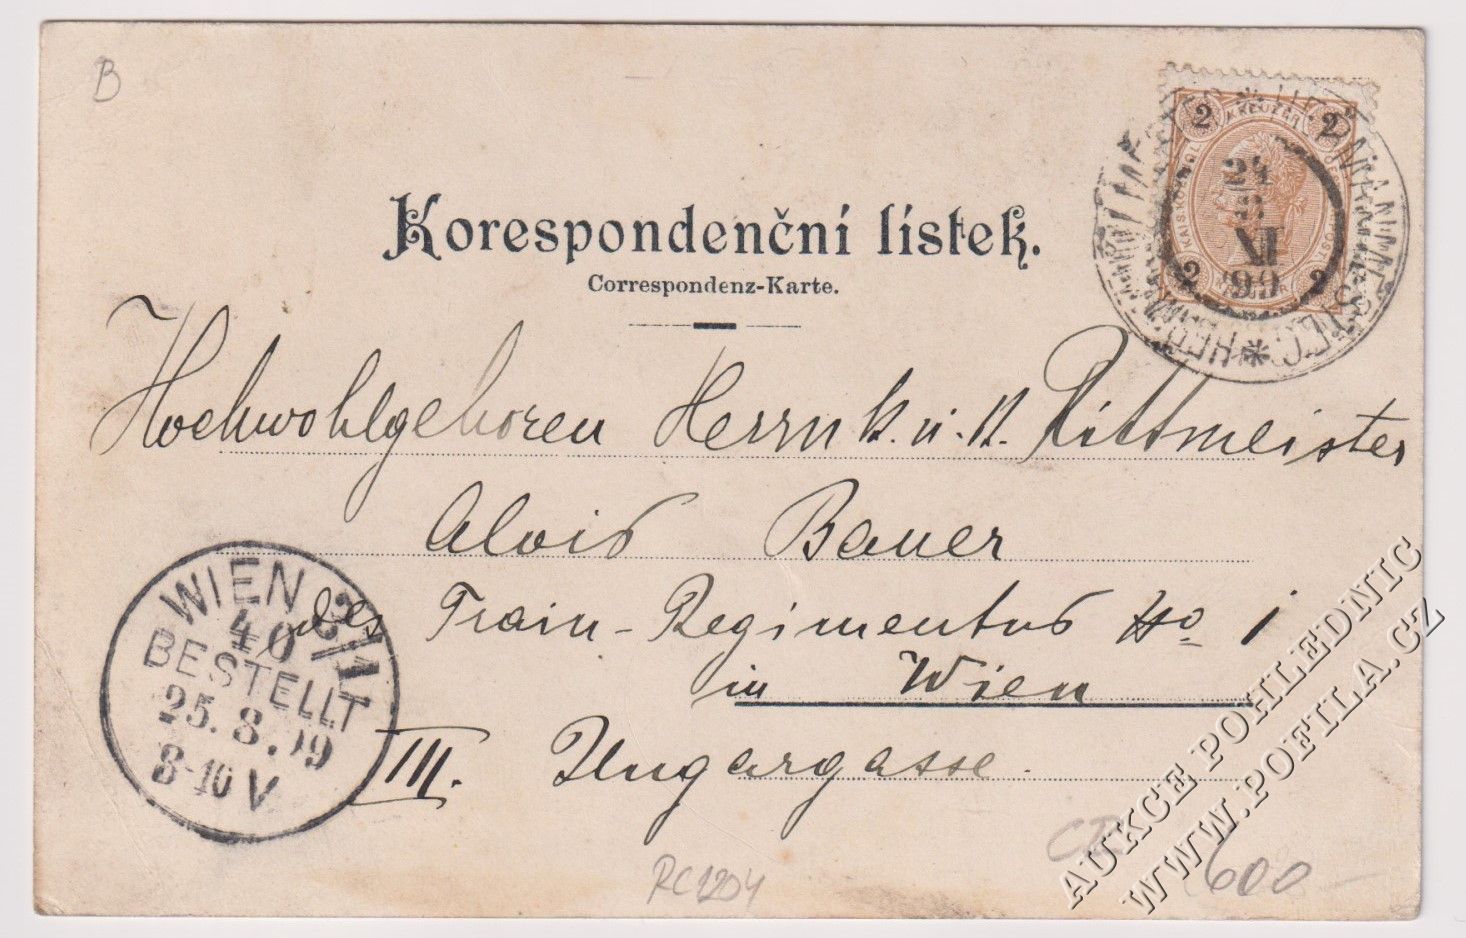 B
Korespondenční lístek.
Correspondenz-Karte.
2 2
2 2
24
8
XI
99
Hochwohlgeboren Herrn k. u. k. Rittmeister
Alois Bauer
des Train-Regimentus No 1
in Wien
III. Ungargasse.
WIEN 3/1
40
BESTELLT
25.8.99
8-10V
RC1204
600
AUKCE POHLEDNIC
WWW.POFILA.CZ